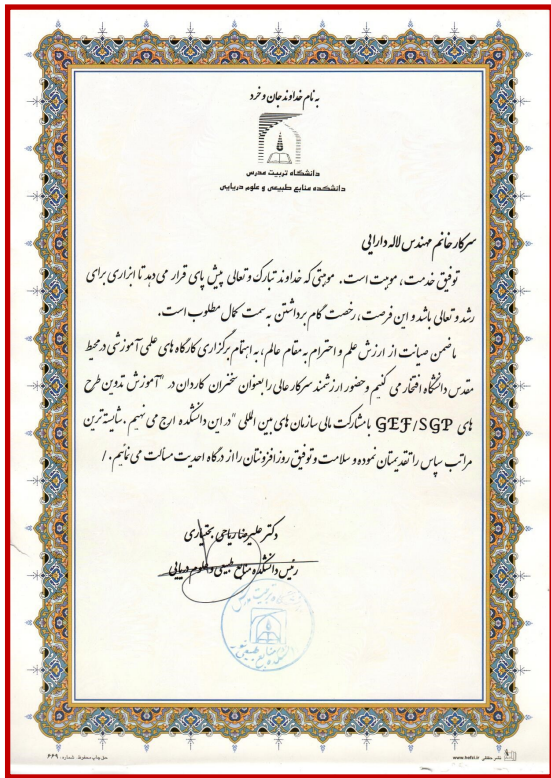 به نام خداوند جان و خرد
دانشگاه تربیت مدرس
دانشکده منابع طبیعی و علوم دریایی
سرکار خانم مهندس لاله دارایی
توفیق خدمت، موهبت است. موهبتی که خداوند تبارک و تعالی پیش پای قرار می دهد تا ابزاری برای
رشد و تعالی باشد و این فرصت، رخصت گام برداشتن به سمت کمال مطلوب است.
ما ضمن صیانت از ارزش علم و احترام به مقام عالم، به اهتمام برگزاری کارگاه های علمی آموزشی در محیط
مقدس دانشگاه افتخار می کنیم و حضور ارزشمند سرکار عالی را بعنوان سخنران کاردان در "آموزش تدوین طرح
های GEF/SGP با مشارکت مالی سازمان های بین المللی" در این دانشکده ارج می نهیم. شایسته ترین
مراتب سپاس را تقدیمتان نموده و سلامت و توفیق روز افزونتان را از درگاه احدیت مسألت می نمائیم. /
دکتر علیرضا ریاحی بختیاری
رئیس دانشکده منابع طبیعی و علوم دریایی
حق چاپ محفوظ شماره: ۴۴۹
www.hefzi.ir نشر حفظی